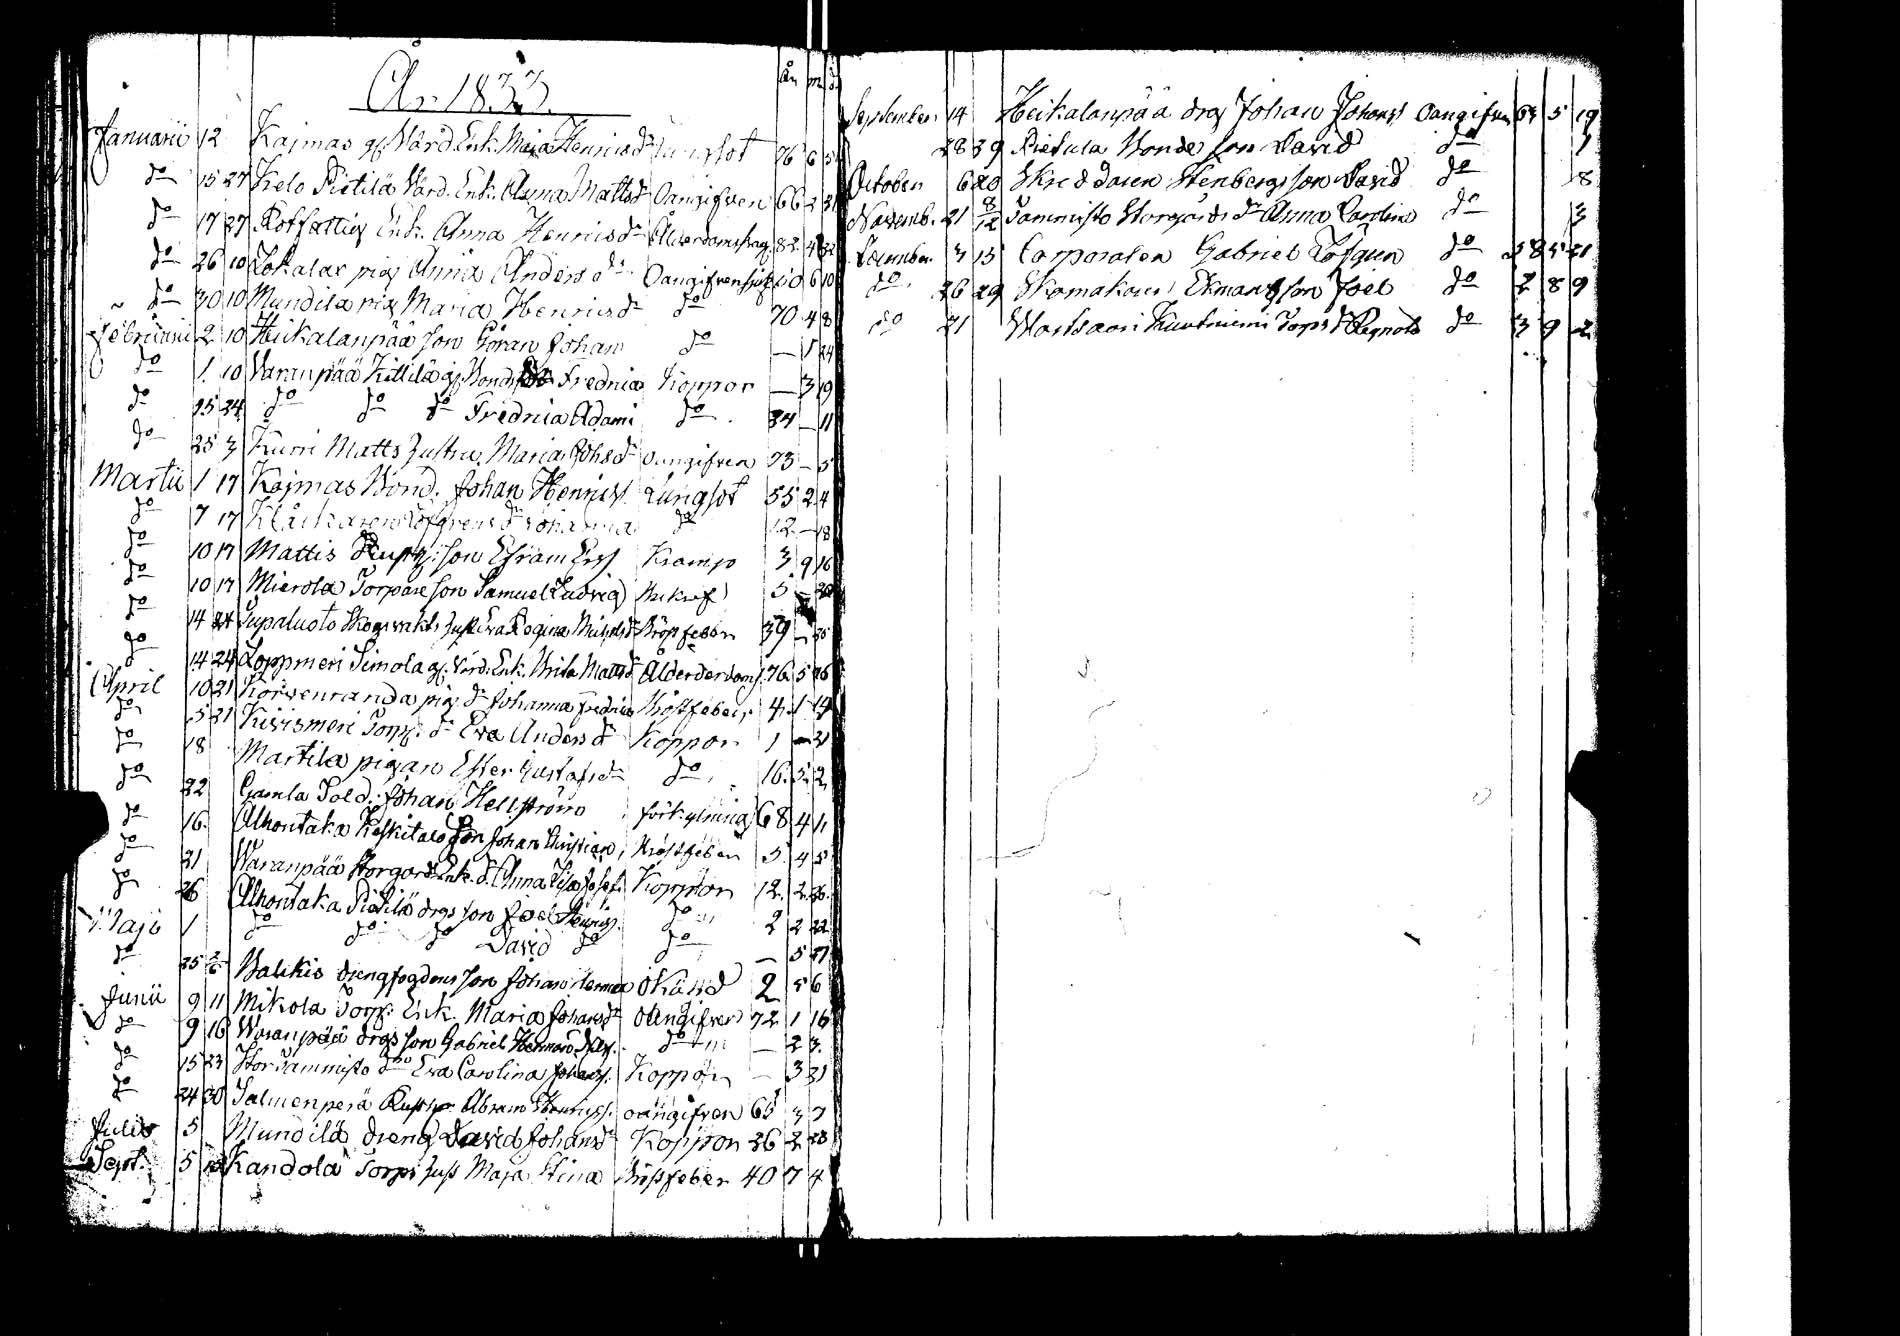 År 1833.
År m d
Januarii 12 Kajmas gl. Värd. Enk. Maja Henriksdr Lungsot 76 6 5
do 15 27 Kelo Pietilä Värd. Enk. Anna Mattsdr Oangifven 66 2 21
do 17 27 Rotfattig Enk. Anna Henriksdr Ålderdomsbrag 82 4 22
do 26 10 Lokalax pig. Anna Andersdr Oangifven 10 6 10
do 30 10 Mundila pig Maria Henriksdr do 70 4 8
Februarii 2 10 Heikalanpää son Göran Johan do — 1 24
do 1 10 Varanpää Kittilä gl. Bonds Frednia Koppor — 3 19
do 15 24 do do dr Frednia Adami do 34 — 11
do 25 3 Kurri Matts hustru Maria Johsdr oangifven 73 — 5
Martii 1 17 Kajmas Bond. Johan Henriss. Lungsot 55 2 4
do 7 17 Klåckaren Löfgrens dr Johanna do 12 — 18
do 10 17 Mattis son Efraim Kramp 3 9 16
do 10 17 Mierola Torpare son Samuel Ludvig 5 —
do 14 24 Supaluoto Skogvakts hust Eva Regina Michelsdr Bröstfeber 39 —
do 14 24 Loppmeri Simola gl. Värd. Enk. Brita Mattsdr Ålderdoms 76 5 26
April 10 21 Korvenranda pig. dr Johanna Frednia Bröstfeber 4 1 14
do 5 21 Kivismeri Torp. dr Eva Andersdr Koppor 1 — 21
do 18 Martila pigan Ester Gustafsdr do 16 5 2
do 22 Gamla Sold. Johan Hellström förkylning 68 4 11
do 16 Alhontaka Keskitalo son Johan Christian Bröstfeber 5 4 5
do 21 Varanpää Storgård Enk. d. Anna Lisa Josefs. Koppor 12 2 26
do 26 Alhontaka Pietilä drgs son Joel Henriss. do 2 2 22
Maji 1 do do do David do do — 5 27
do 25 2/6 Valikis drengfogdens son Johan Herman okänd 2 5 6
Junii 9 11 Mikola Torp. Enk. Maria Johansdr oangifven 72 1 16
do 9 16 Varanpää drgs son Gabriel Herman do — 2 3
do 15 23 Stor Tammisto dr Eva Carolina Johans. Koppor — 3 21
do 24 30 Salmenperä Abram Henriss. oangifven 65 3 7
Julii 5 Mundilä dreng David Johans Koppor 36 2 28
Sept. 5 Kandola Torps hust Maja Stina Bröstfeber 40 7 4
September 14 Heikalanpää drg Johan Johanss Oangifven 5 19
28 29 Pietula Bonde son David do 1
October 6 20 Skreddaren Stenbergs son David do 8
Novemb. 21 8/12 Tammisto Storgårds dr Anna Carolina do 3
December 3 15 Corporalen Gabriel Löfgren do 58 5 21
do 26 29 Skomakaren Ekmans son Joel do 2 8 9
do 21 Vartsaari Kuutniemi Torps dr Regnolt do 3 9 2